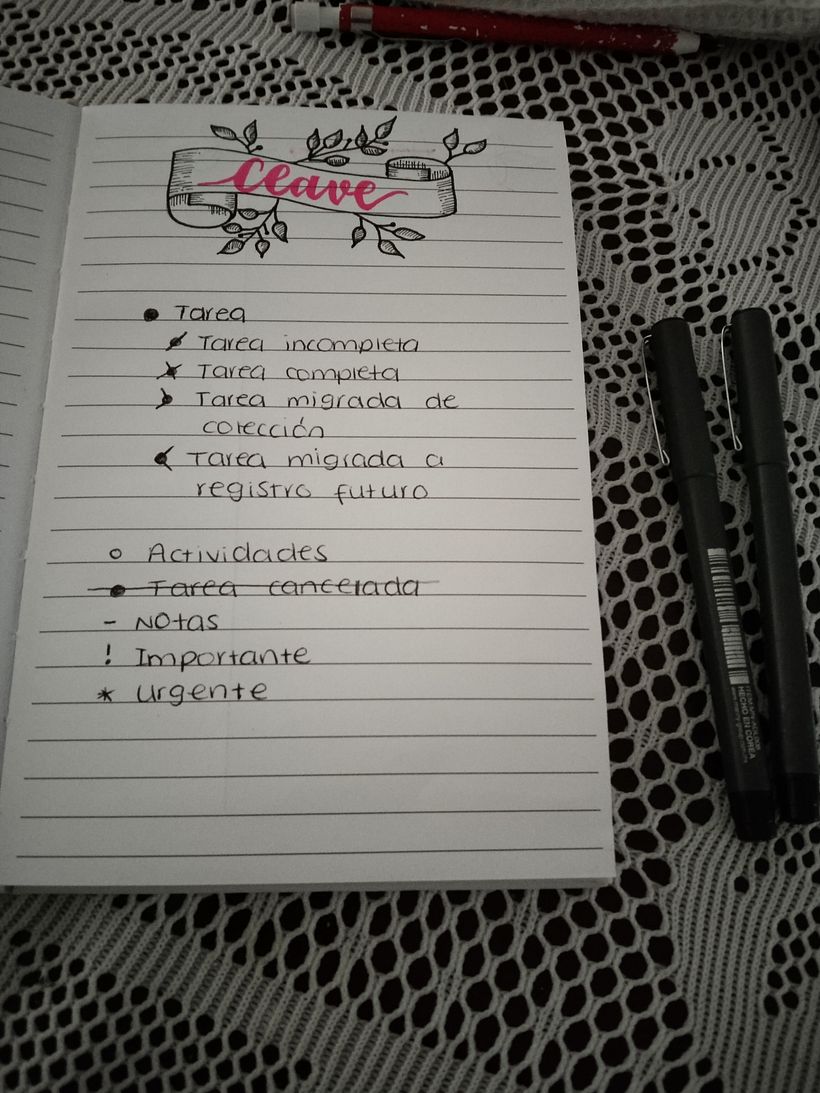 Clave
● Tarea
Tarea incompleta
× Tarea completa
> Tarea migrada de
colección
< Tarea migrada a
registro futuro
○ Actividades
● Tarea cancelada
- Notas
! Importante
* urgente
HECHO EN COREA